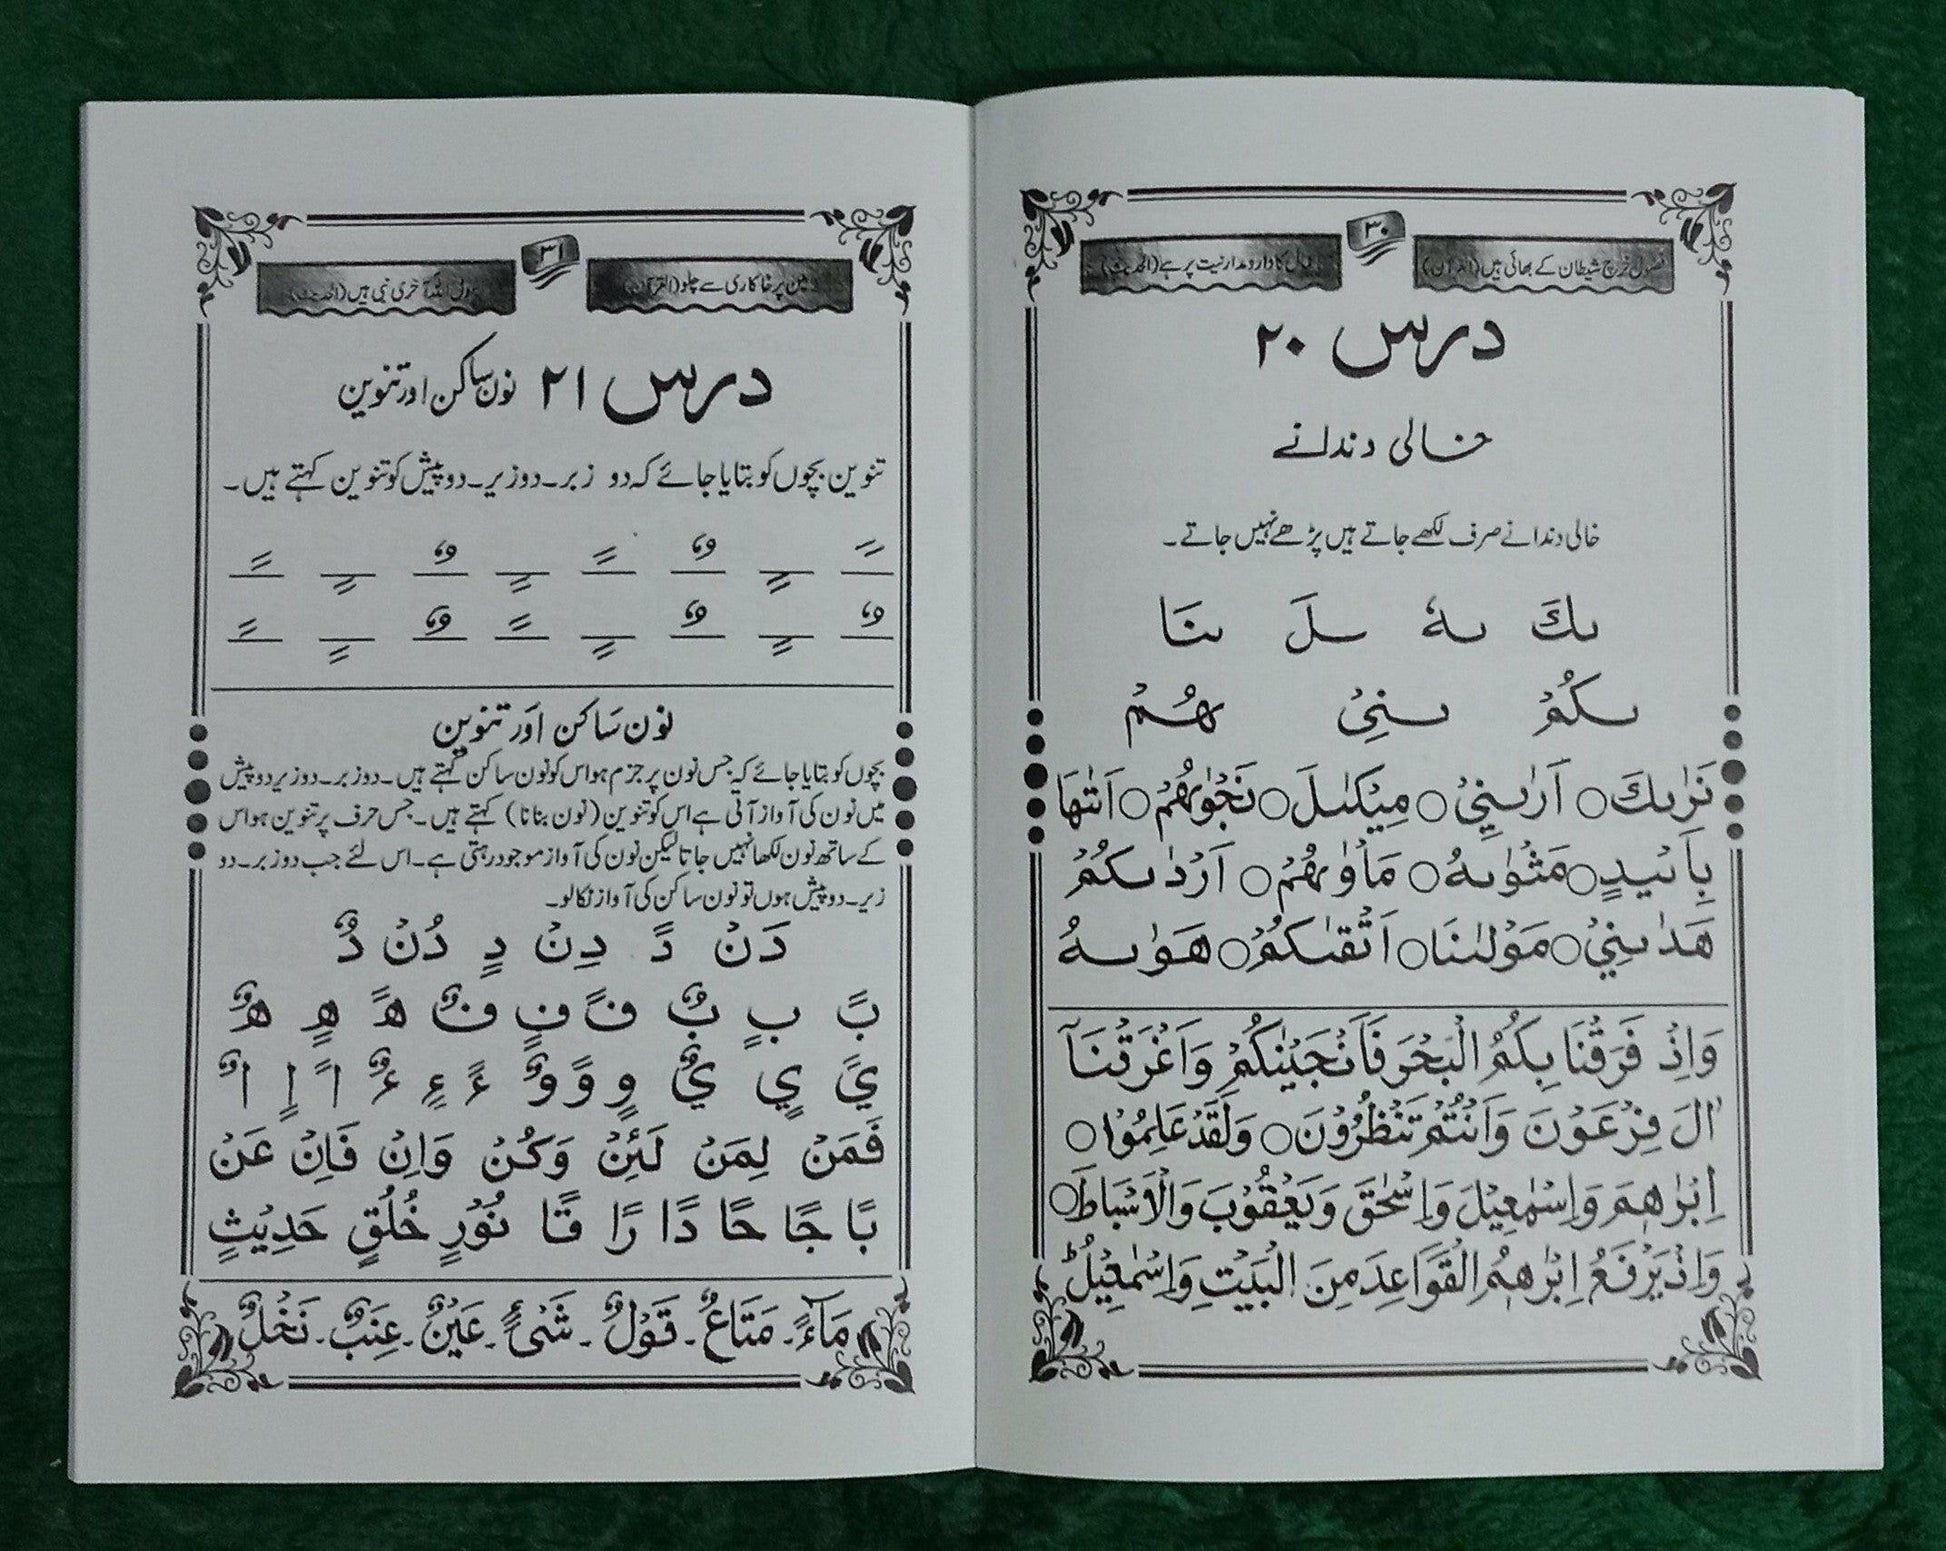 ۳۰
فضول خرچ شیطان کے بھائی ہیں (القرآن)
کا دارومدار نیت پر ہے (الحدیث)
درس ۲۰
خالی دندانے
خالی دندانے صرف لکھے جاتے ہیں پڑھے نہیں جاتے۔
ىكَ ىهٗ ىـلَ ىنَا
ىكُمْ ىنِیْ هُمْ
نَرٰىكَ ○ اَرٰىنِیْ ○ مِيْكٰىلَ ○ نَجْوٰىهُمْ ○ اَتٰىهَا
بِاَىْيدٍ ○ مَثْوٰىهُ ○ مَاْوٰىهُمْ ○ اَرْدٰىكُمْ
هَدٰىنِیْ ○ مَوْلٰىنَا ○ اَتْقٰىكُمْ ○ هَوٰىهُ
وَاِذْ فَرَقْنَا بِكُمُ الْبَحْرَ فَاَنْجَيْنٰكُمْ وَاَغْرَقْنَآ
اٰلَ فِرْعَوْنَ وَاَنْتُمْ تَنْظُرُوْنَ ○ وَلَقَدْ عَلِمُوْا ○
اِبْرٰهٖمَ وَاِسْمٰعِيْلَ وَاِسْحٰقَ وَيَعْقُوْبَ وَالْاَسْبَاطَ ○
وَاِذْ يَرْفَعُ اِبْرٰهٖمُ الْقَوَاعِدَ مِنَ الْبَيْتِ وَاِسْمٰعِيْلُ ؕ
۳۱
زمین پر خاکاری سے چلو (القرآن)
آخری نبی ہیں (الحدیث)
درس ۲۱ نون ساکن اور تنوین
تنوین بچوں کو بتایا جائے کہ دو زبر۔ دو زیر۔ دو پیش کو تنوین کہتے ہیں۔
ـً ـٍ ـٌ ـً ـٍ ـٌ ـٍ ـً
ـٌ ـٍ ـٌ ـٍ ـً ـٌ ـٍ ـً
نون ساکن اور تنوین
بچوں کو بتایا جائے کہ جس نون پر جزم ہو اس کو نون ساکن کہتے ہیں۔ دو زبر۔ دو زیر دو پیش
میں نون کی آواز آتی ہے اس کو تنوین (نون بنانا) کہتے ہیں۔ جس حرف پر تنوین ہو اس
کے ساتھ نون لکھا نہیں جاتا لیکن نون کی آواز موجود رہتی ہے۔ اس لئے جب دو زبر۔ دو
زیر۔ دو پیش ہوں تو نون ساکن کی آواز نکالو۔
دَنْ دً دِنْ دٍ دُنْ دٌ
بً بٍ بٌ نً نٍ نٌ هً هٍ هٌ
يً يٍ يٌ وٍ وً وٌ ءً ءٍ ءٌ اً اٍ اٌ
فَمَنْ لِمَنْ لَئِنْ وَكُنْ وَاِنْ فَاِنْ عَنْ
بًا جًا حًا دًا رًا قًا نُوْرٍ خُلُقٍ حَدِيْثٍ
مَآءً۔ مَتَاعٌ۔ قَوْلٌ۔ شَیْءٍ۔ عَيْنٌ۔ عِنَبٌ۔ نَخْلٌ